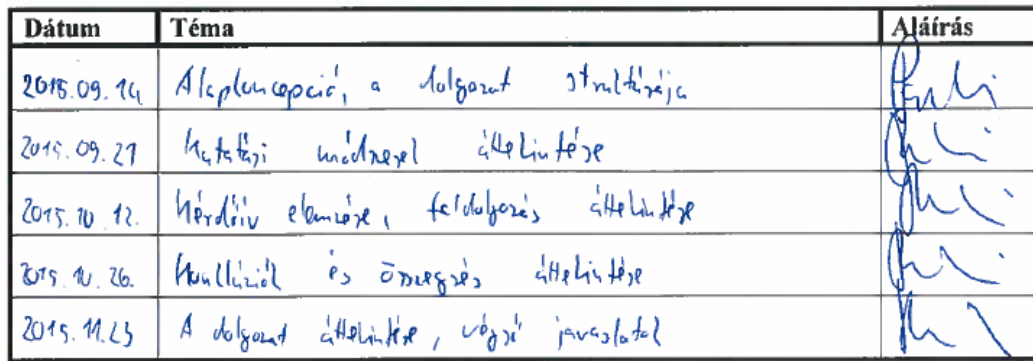 Dátum Téma Aláírás
2015.09.14 Alapkoncepció, a dolgozat struktúrája
2015.09.21 Kutatási módszerek áttekintése
2015.10.12. Kérdőív elemzése, feldolgozás áttekintése
2015.10.26. Konklúziók és összegzés áttekintése
2015.11.23 A dolgozat áttekintése, végső javaslatok